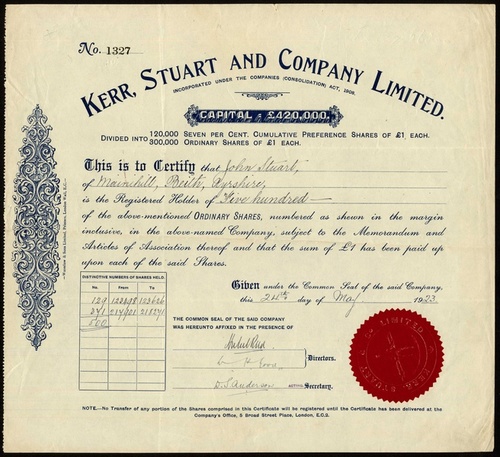 No. 1327
KERR, STUART AND COMPANY LIMITED.
INCORPORATED UNDER THE COMPANIES (CONSOLIDATION) ACT, 1908.
CAPITAL - £420,000.
DIVIDED INTO 120,000 SEVEN PER CENT. CUMULATIVE PREFERENCE SHARES OF £1 EACH.
300,000 ORDINARY SHARES OF £1 EACH.
This is to Certify that John Stuart,
of Mainshill, Beith, Ayrshire,
is the Registered Holder of Five hundred
of the above-mentioned ORDINARY SHARES, numbered as shewn in the margin
inclusive, in the above-named Company, subject to the Memorandum and
Articles of Association thereof and that the sum of £1 has been paid up
upon each of the said Shares.
DISTINCTIVE NUMBERS OF SHARES HELD.
No. From To
129 123498 123626
371 217901 218271
500
Given under the Common Seal of the said Company,
this 24th day of May 1923.
THE COMMON SEAL OF THE SAID COMPANY
WAS HEREUNTO AFFIXED IN THE PRESENCE OF
Directors.
D. S. Anderson ACTING Secretary.
NOTE.—No Transfer of any portion of the Shares comprised in this Certificate will be registered until the Certificate has been delivered at the
Company's Office, 5 Broad Street Place, London, E.C.2.